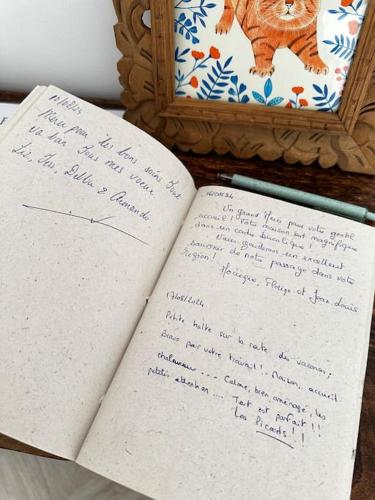 10/08/24
Merci pour les bons soins
Tous mes voeux
Debbie & Armando
16/08/24
Un grand Merci pour votre gentil
accueil ! Votre maison est magnifique
dans un cadre bucolique !
Nous garderons un excellent
souvenir de notre passage dans votre
région !
et Jean Louis
17/08/2024
Petite halte sur la route des vacances.
Bravo pour votre travail ! Maison, accueil
chaleureux .... Calme, bien aménagé, les
petites attention .... Tout est parfait !!
Les Picards ! !